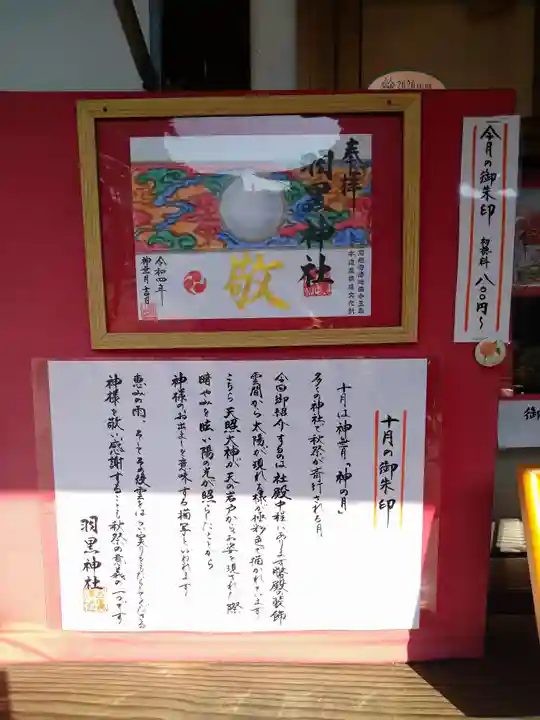 今月の御朱印
初穂料 八〇〇円〜
奉拝
羽黒神社
敬
令和四年
十月の御朱印
十月は神無月「神の月」
多くの神社で秋祭が斎行される月
今回御紹介するのは社殿中程にあります幣殿の装飾
雲間から太陽が現れる様が極彩色で描かれています
こちら天照大神が天の岩戸からお姿を現された際
暗やみを眩い陽の光が照らしたことから
神様のお出ましを意味する描写といわれます
恵みの雨、そしてその後
神様を敬い感謝することも秋祭の意義の一つです
羽黒神社
御